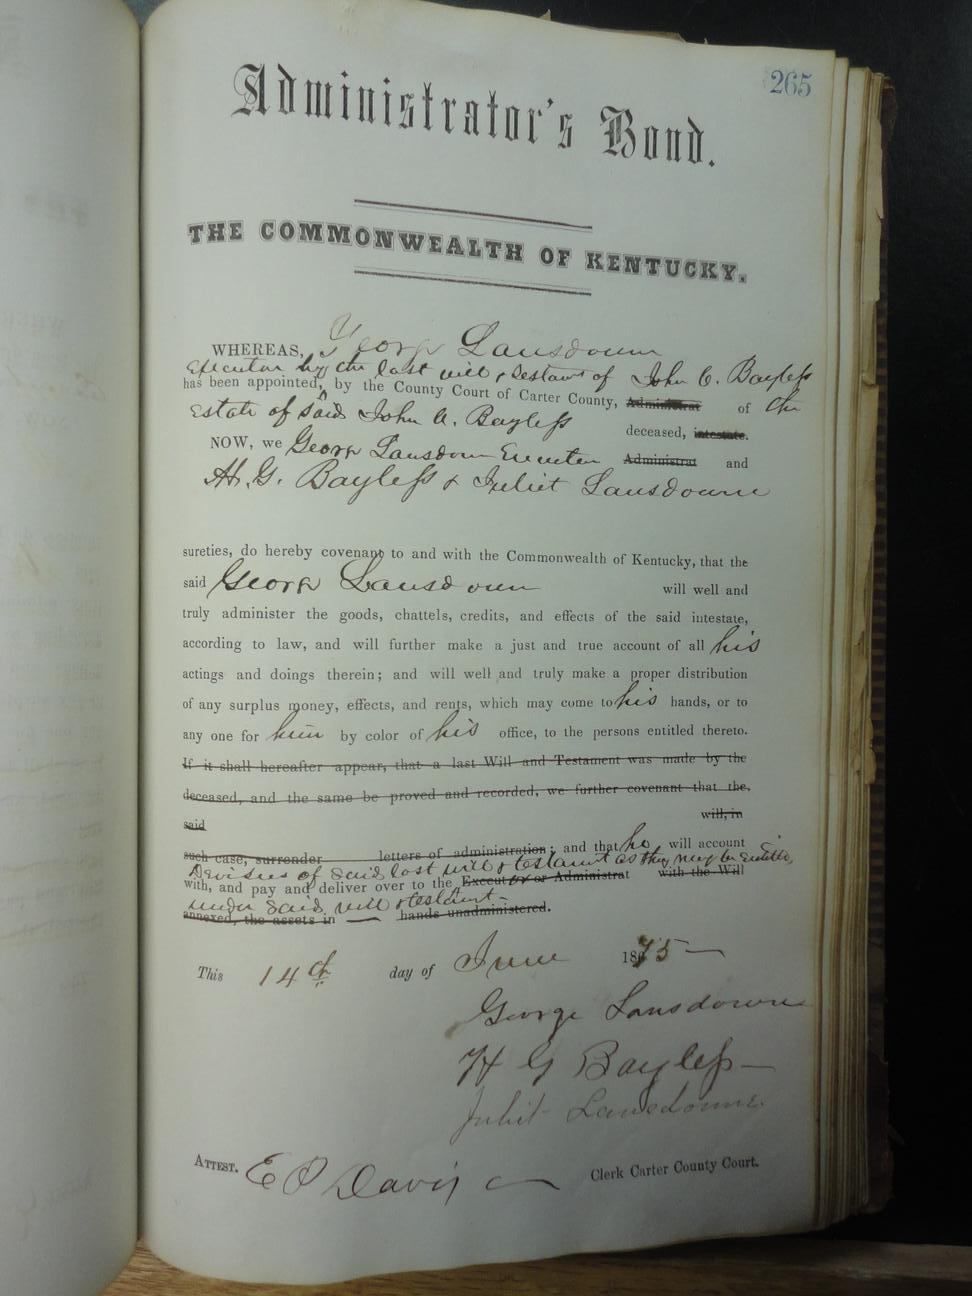 265
Administrator's Bond.
THE COMMONWEALTH OF KENTUCKY.
WHEREAS, George Lansdown
Executor by the last will & Testamt of John C. Bayless
has been appointed, by the County Court of Carter County, Administrat of the
Estate of said John C. Bayless deceased, intestate.
NOW, we George Lansdown Executor Administrat and
H. G. Bayless & Juliet Lansdowne
sureties, do hereby covenant to and with the Commonwealth of Kentucky, that the
said George Lansdown will well and
truly administer the goods, chattels, credits, and effects of the said intestate,
according to law, and will further make a just and true account of all his
actings and doings therein; and will well and truly make a proper distribution
of any surplus money, effects, and rents, which may come to his hands, or to
any one for him by color of his office, to the persons entitled thereto.
If it shall hereafter appear, that a last Will and Testament was made by the
deceased, and the same be proved and recorded, we further covenant that the
said will, in
such case, surrender letters of administration; and that he will account
Devisees of said last will & testamt as they may be entitled
with, and pay and deliver over to the Executor or Administrat with the Will
under said will & testamt
annexed, the assets in hands unadministered.
This 14th day of June 1875
George Lansdowne
H G Bayless
Juliet Lansdowne
ATTEST. E O Davis C Clerk Carter County Court.